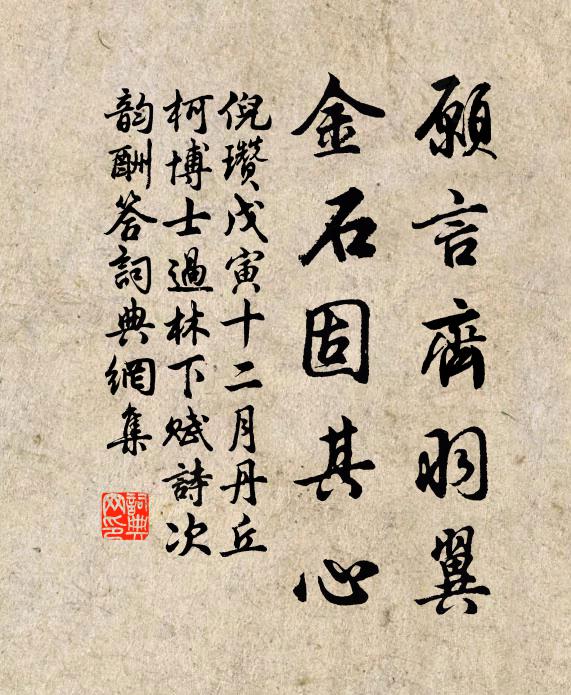 願言齊羽翼
金石固其心
倪瓚戊寅十二月丹丘
柯博士過林下賦詩次
韵酬答詞典網集
詞典
网印